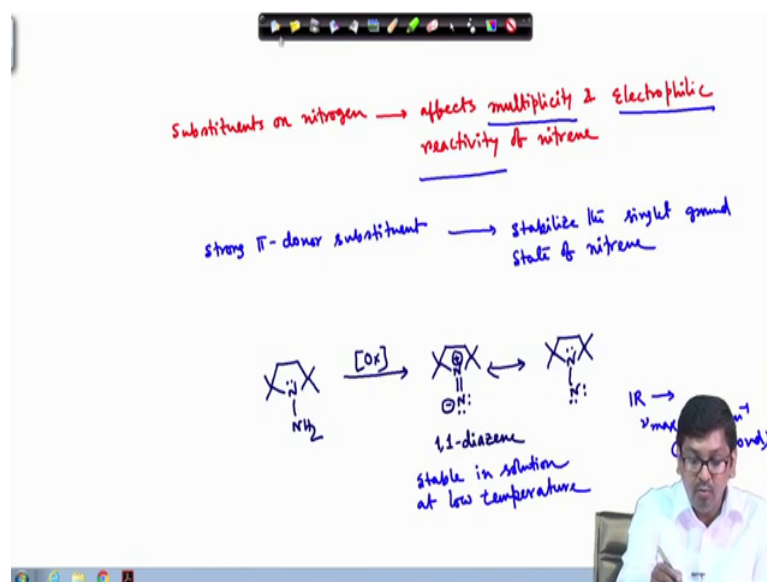 Substituents on nitrogen → affects multiplicity & Electrophilic
reactivity of nitrene
strong π-donor substituent → stabilize the singlet ground
state of nitrene
[Ox]
N
NH2
⊕
N
⊖ N:
↔
N
N:
1,1-diazene
stable in solution
at low temperature
IR →
νmax